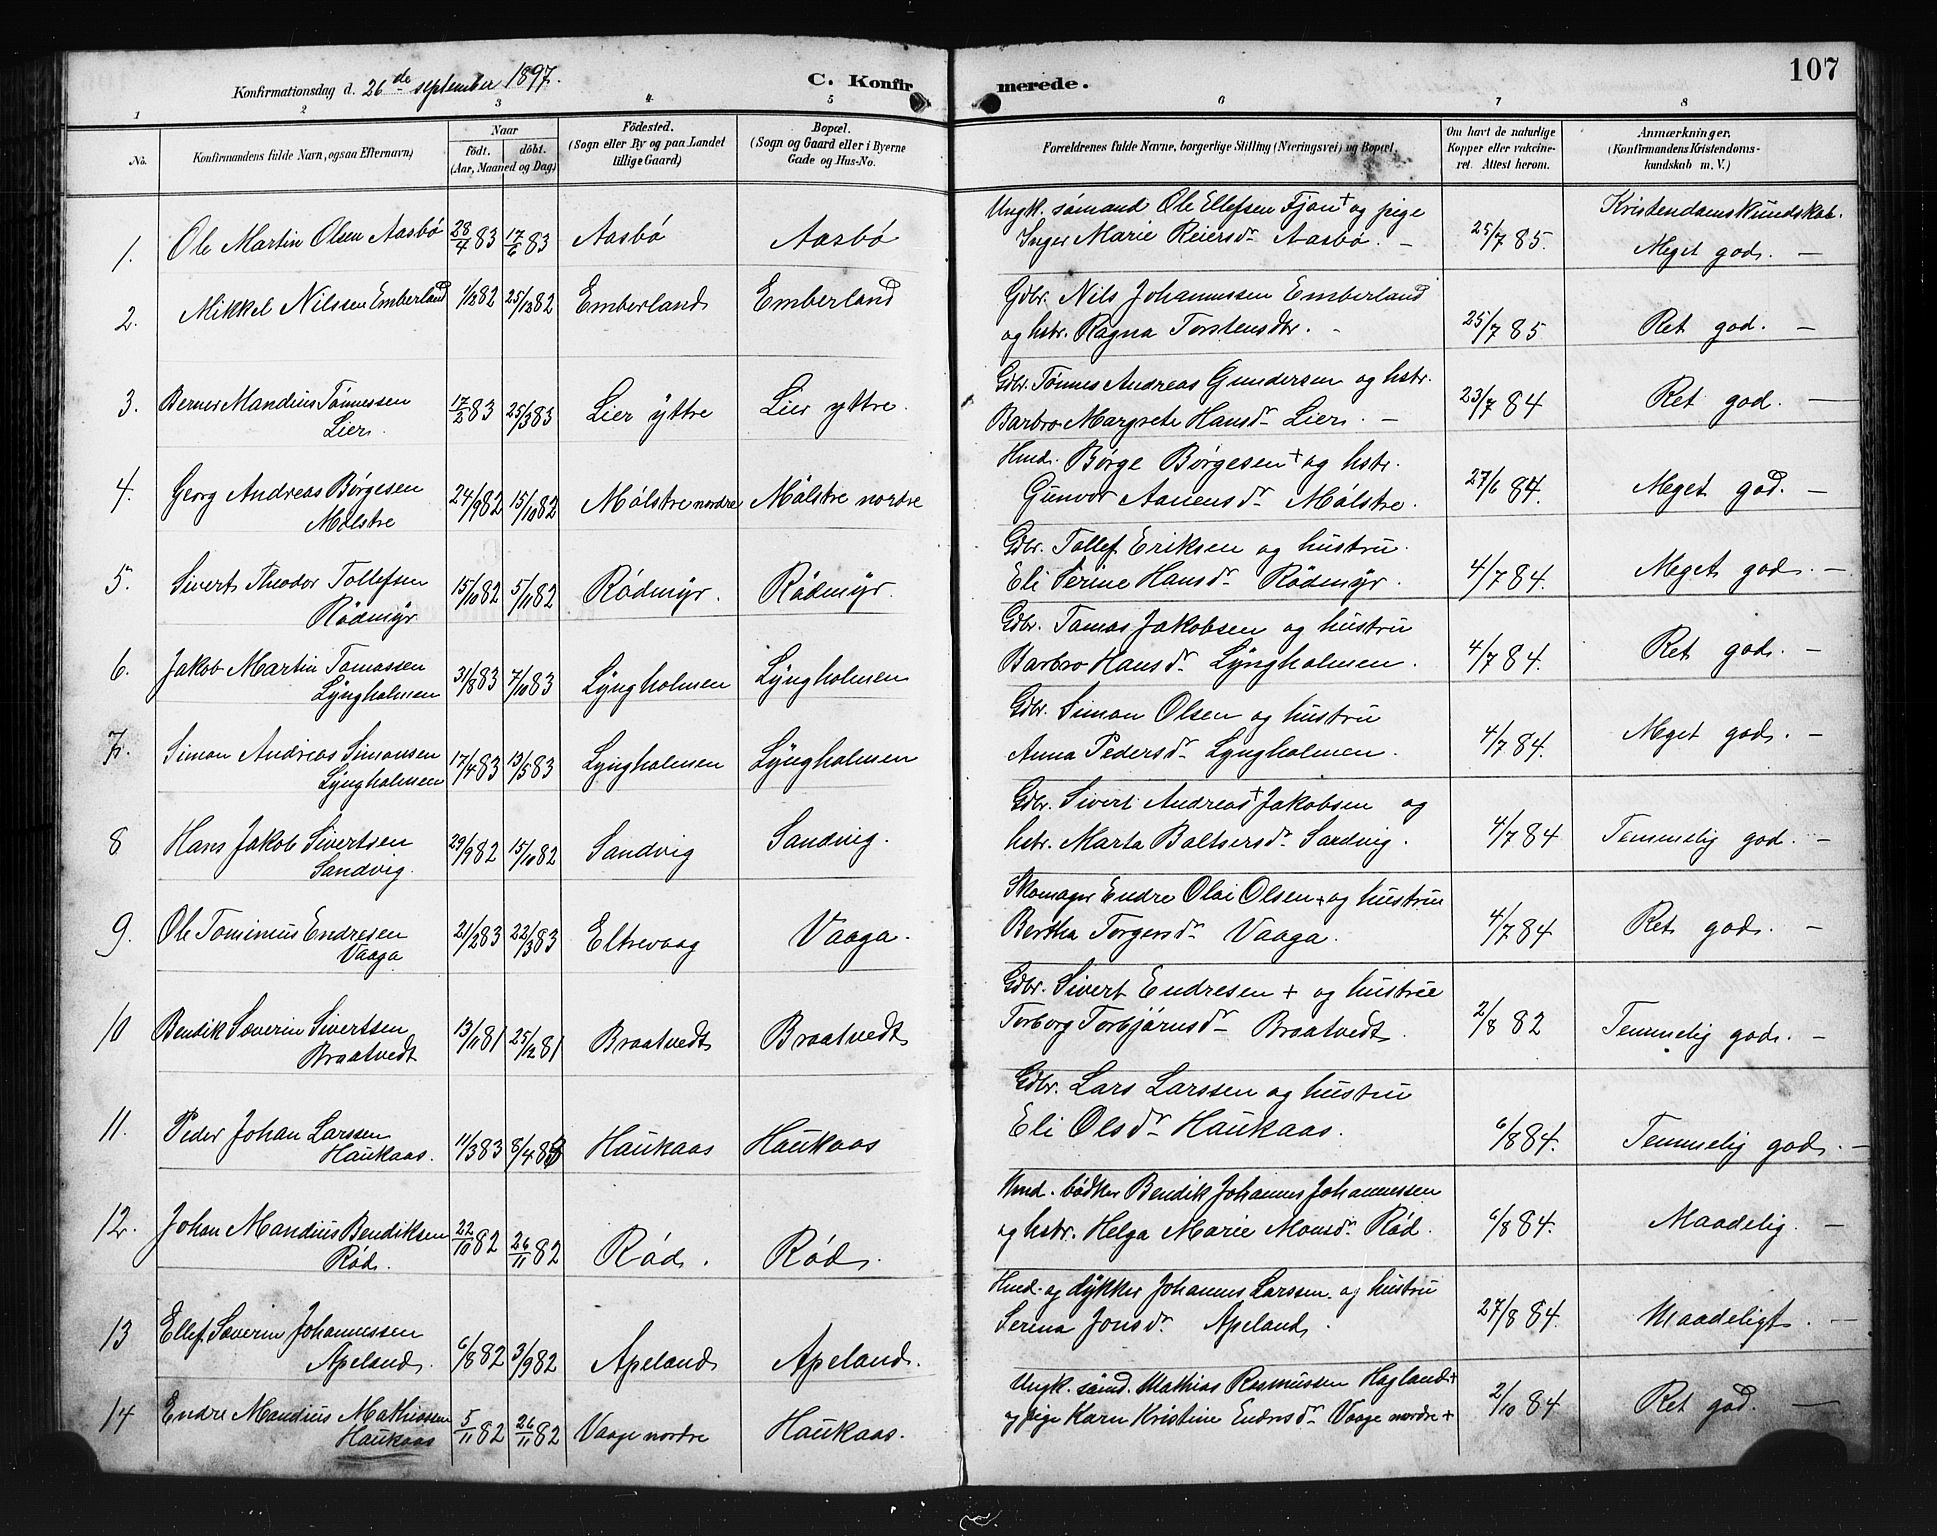 107
Konfirmationsdag d. 26de september 1897. C. Konfirmerede.
1 2 3 4. 5 6 7 8
No. Konfirmandens fulde Navn, ogsaa Efternavn) Naar født. døbt. (Aar, Maaned og Dag) Fødested. (Sogn eller By og paa Landet tillige Gaard) Bopæl. (Sogn og Gaard eller i Byerne Gade og Hus-No. Forældrenes fulde Navne, borgerlige Stilling (Næringsvei) og Bopæl. Om havt de naturlige Kopper eller vakcineret. Attest herom. Anmærkninger, (Konfirmandens Kristendomskundskab m. V.)
Kristendomskundskab.
1. Ole Martin Olsen Aasbø 28/4 83 17/6 83 Aasbø Aasbø Ungk. sømand Ole Ellefsen Fjon + og pige
Inger Marie Reiersdr Aasbø. – 25/7 85. Meget god. –
2. Mikkel Nilssen Emberland 1/12 82 25/12 82 Emberland Emberland Gdbr. Nils Johannessen Emberland
og hstr. Ragna Torstensdtr. - 25/7 85 Ret god. –
3. Berner Mandius Tønnessen
Lier. 17/2 83 25/3 83 Lier yttre Lier yttre. Gdbr. Tønnes Andreas Gundersen og hstr.
Barbro Margrete Hansdr Lier. – 23/7 84 Ret god. –
4. Georg Andreas Børgesen
Mølstre 24/9 82 15/10 82 Mølstre nordre Mølstre nordre Hmd. Børge Børgesen + og hstr.
Gunvor Aanensdr Mølstre. 27/6 84. Meget god. –
5. Sivert Theodor Tollefsen
Rødmyr 15/10 82 5/11 82 Rødmyr. Rødmyr. Gdbr. Tollef Eriksen og hustru.
Eli Serine Hansdr Rødmyr. 4/7 84. Meget god. –
6. Jakob Martin Tomassen
Lyngholmen 31/8 83 7/10 83 Lyngholmen Lyngholmen Gdbr. Tomas Jakobsen og hustru
Barbro Hansdr Lyngholmen. 4/7 84. Ret god. –
7. Simon Andreas Simonsen
Lyngholmen 17/4 83 13/5 83 Lyngholmen Lyngholmen Gdbr. Simon Olsen og hustru
Anna Pedersdr Lyngholmen. 4/7 84. Meget god. –
8 Hans Jakob Sivertsen
Sandvig. 29/9 82 15/10 82 Sandvig Sandvig. Gdbr. Sivert Andreas + Jakobsen og
hstr. Marta Baltsersdr Sandvig. 4/7 84 Temmelig god. –
9. Ole Tominius Endresen
Vaaga 21/2 83 22/3 83 Eltrevaag Vaaga. Skomager Endre Olai Olsen + og hustru
Bertha Torgersdr Vaaga. 4/7 84. Ret god. –
10 Bendik Severin Sivertsen
Braatvedt 13/11 81 25/12 81 Braatvedt Braatvedt Gdbr. Sivert Endresen + og hustru
Torborg Torbjørnsdr Braatvedt. 2/8 82 Temmelig god. –
11. Peder Johan Larssen
Haukaas. 11/3 83 8/4 83 Haukaas Haukaas Gdbr. Lars Larssen og hustru
Eli Olsdr Haukaas. 6/8 84. Temmelig god. –
12. Johan Mandius Bendiksen
Rød. 22/10 82 26/11 82 Rød. Rød. Hmd. bødker Bendik Johannes Johannessen
og hstr. Helga Marie Monsdr Rød. 6/8 84. Maadelig. –
13 Ellef Severin Johannessen
Apeland. 6/8 82 3/9 82 Apeland Apeland. Hmd. og dykker Johannes Larssen. og hustru
Serena Jonsdr. Apeland. 27/8 84. Maadeligt. –
14 Endre Mandius Mathiassen
Haukaas 5/11 82 26/11 82 Vaage nordre Haukaas. Ungk. sømd. Mathias Rasmussen Hagland +
og pige Karn Kristine Endresdr Vaage nordre + 2/10 84 Ret god. –